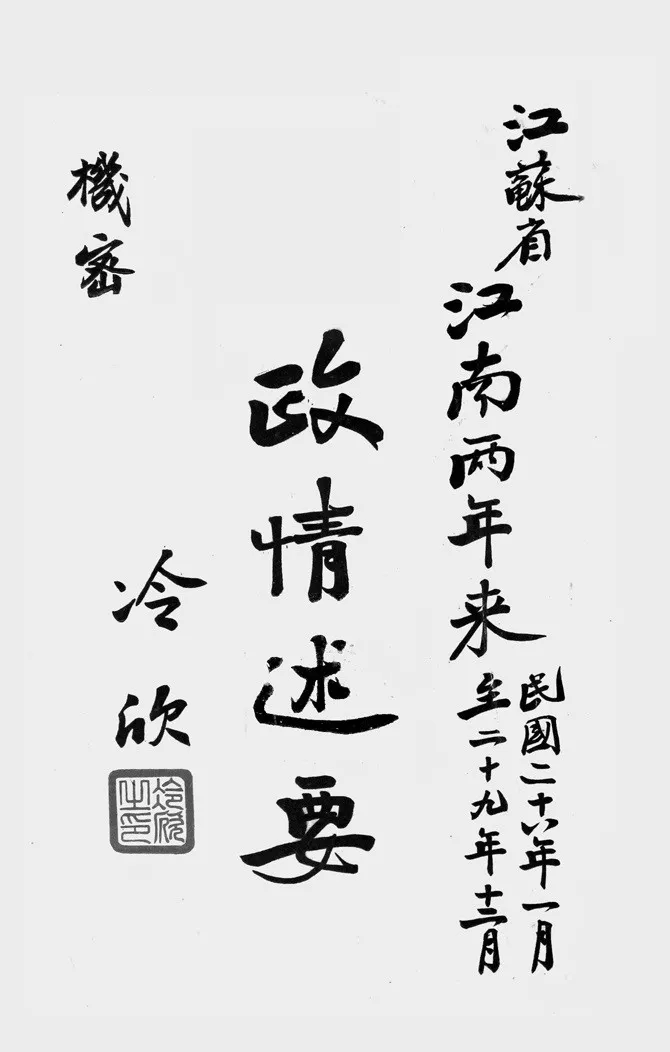 江蘇省
江南两年来
民國二十八年一月
至二十九年十二月
政情述要
機密
冷欣
冷欣之印